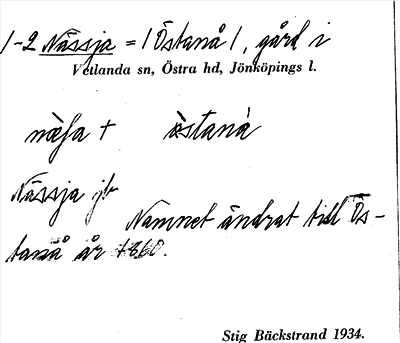 1-2 Nässja = / Östanå /, gård i
Vetlanda sn, Östra hd, Jönköpings l.
näſa + östanå
Nässja jb
Namnet ändrat till Ös-
tanå år 1860.
Stig Bäckstrand 1934.